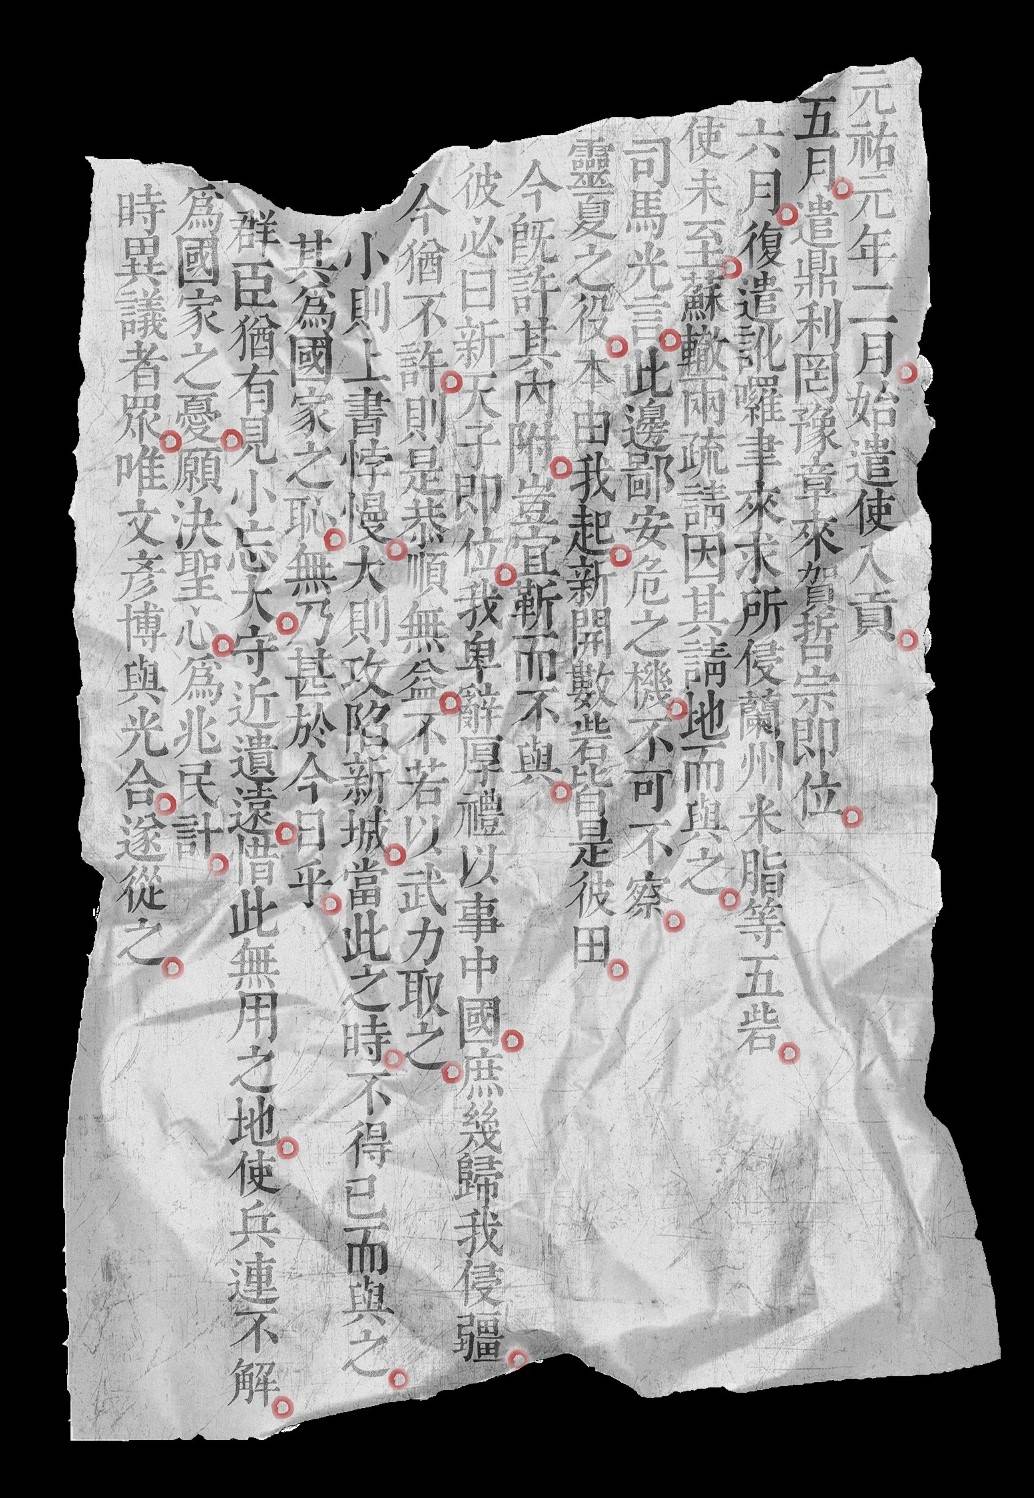 元祐元年二月。始遣使入貢。
五月。遣鼎利罔豫章來賀哲宗即位。
六月。復遣訛囉聿來求所侵蘭州米脂等五砦。
使未至。蘇轍兩疏請因其請地而與之。
司馬光言。此邊鄙安危之機。不可不察。
靈夏之役。本由我起。新開數砦皆是彼田。
今旣許其內附。豈宜靳而不與。
彼必曰新天子即位。我卑辭厚禮以事中國。庶幾歸我侵疆。
今猶不許。則是恭順無益。不若以武力取之。
小則上書悖慢。大則攻陷新城。當此之時。不得已而與之。
其爲國家之恥。無乃甚於今日乎。
群臣猶有見小忘大。守近遺遠。惜此無用之地。使兵連不解。
爲國家之憂。願決聖心。爲兆民計。
時異議者眾。唯文彥博與光合。遂從之。